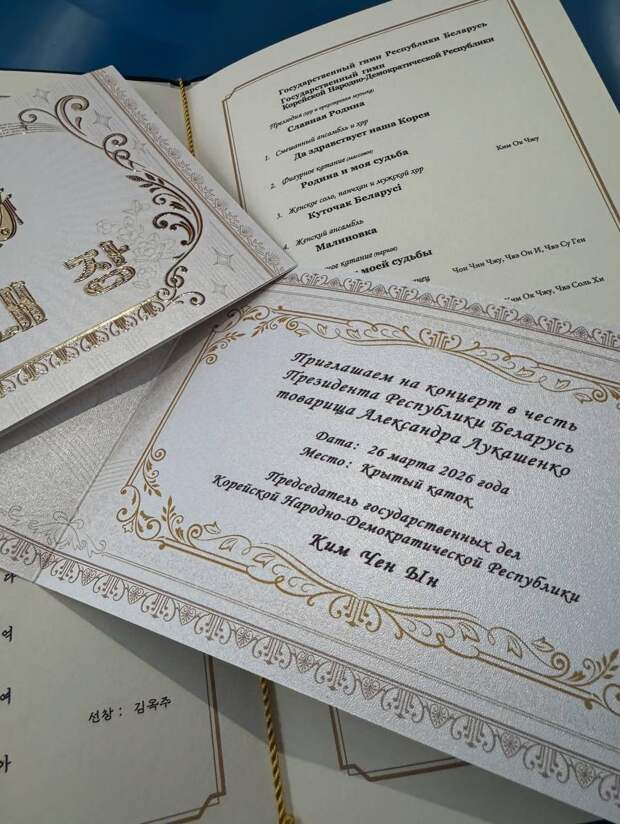 Государственный гимн Республики Беларусь
Государственный гимн
Корейской Народно-Демократической Республики
Славная Родина
1. Смешанный ансамбль и хор
Да здравствует наша Корея
Ким Ок Чжу
2. Фигурное катание (массовое)
Родина и моя судьба
3. Женское соло, панчхан и мужской хор
Куточак Беларусі
4. Женский ансамбль
Малиновка
ное катание (парное)
моей судьбы
Чон Чин Чжу, Чвэ Он И, Чвэ Су Ген
Ким Ок Чжу, Чвэ Соль Хи
장
Приглашаем на концерт в честь
Президента Республики Беларусь
товарища Александра Лукашенко
Дата: 26 марта 2026 года
Место: Крытый каток
Председатель государственных дел
Корейской Народно-Демократической Республики
Ким Чен Ын
여
여
선창 : 김옥주
아